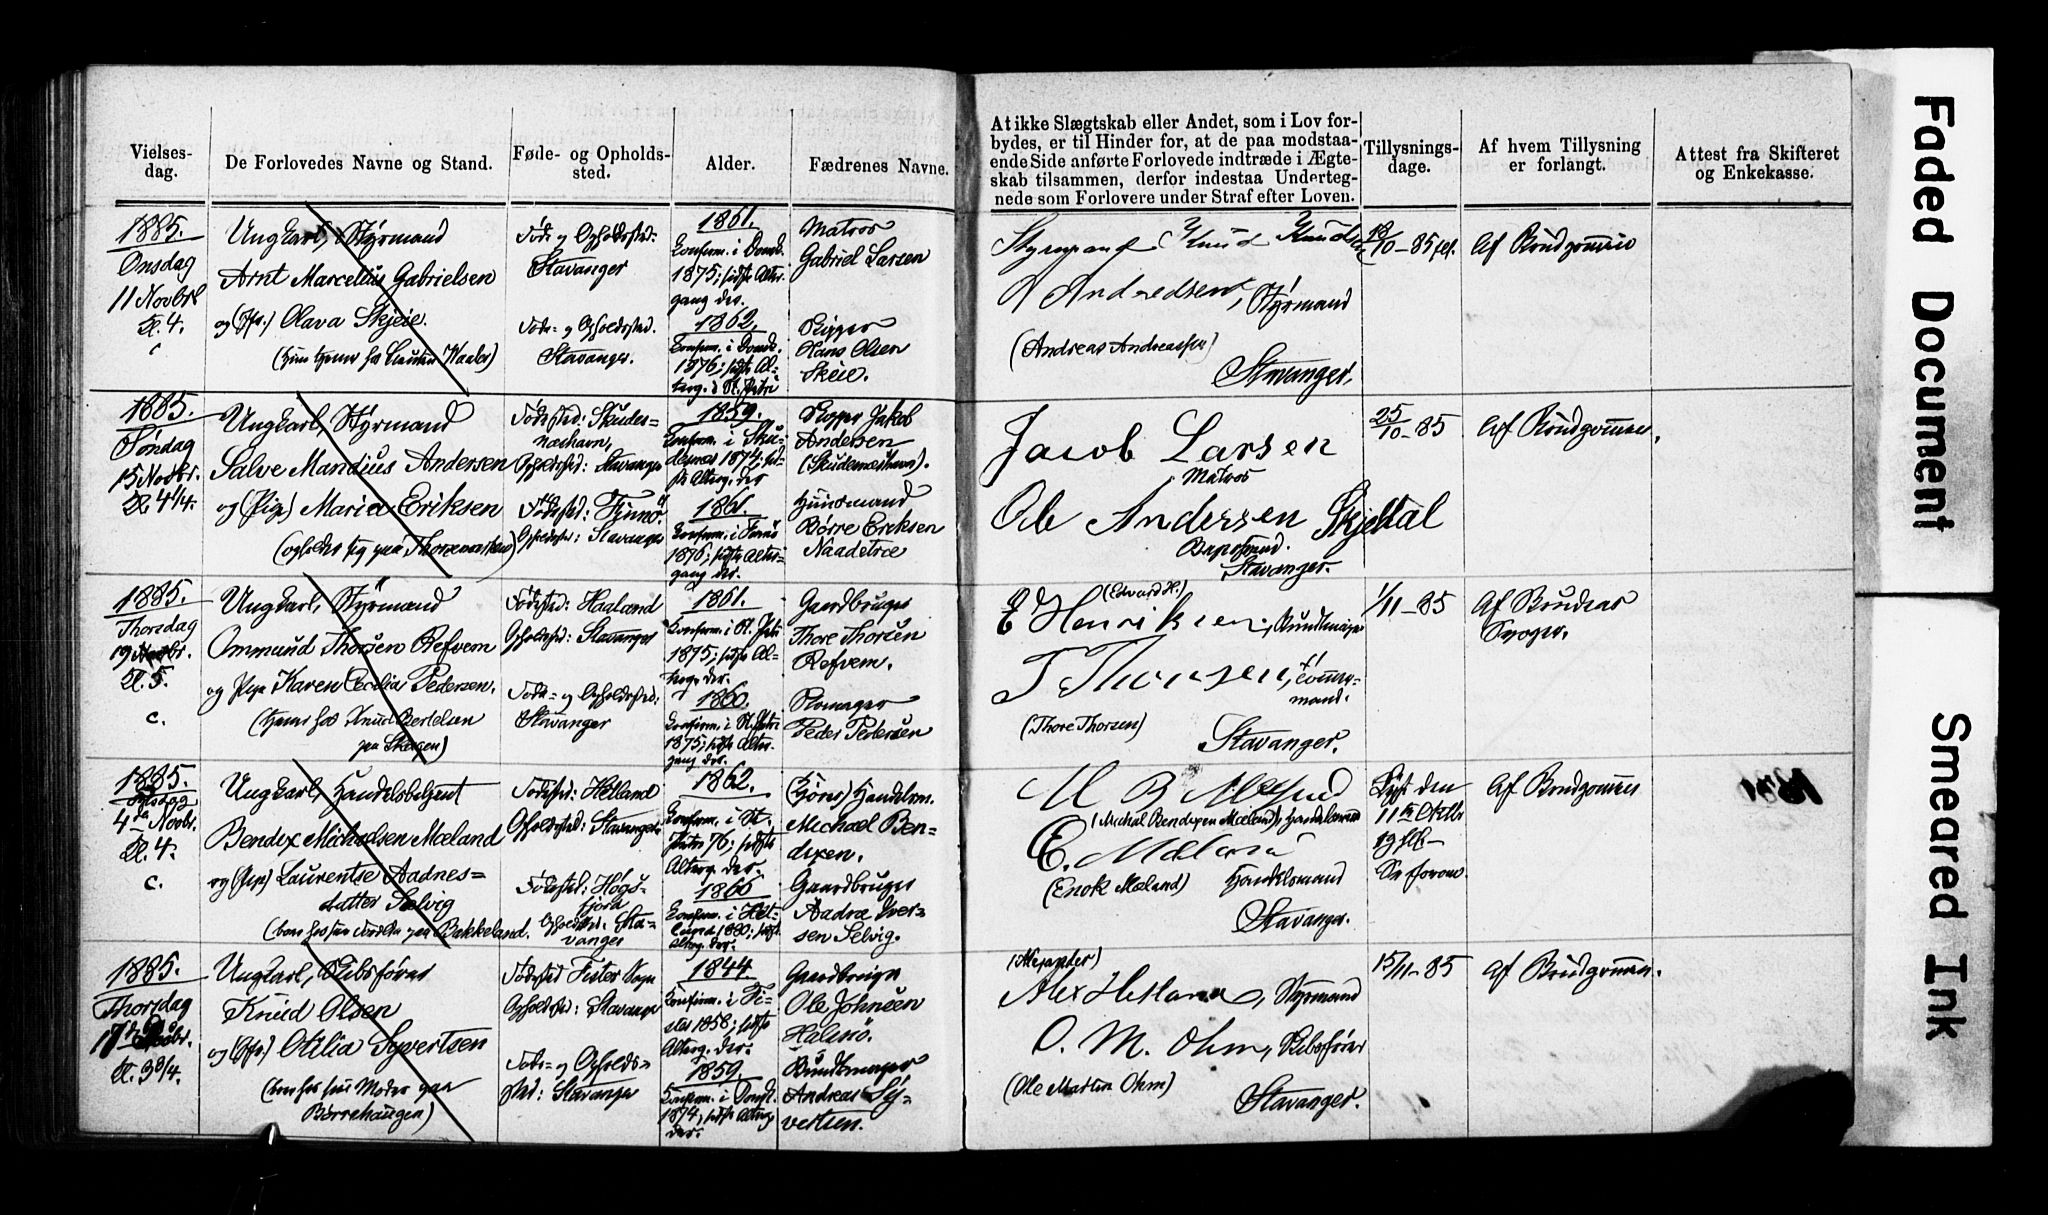 Vielses-
dag.
De Forlovedes Navne og Stand.
Føde- og Opholds-
sted.
Alder.
Fædrenes Navne.
At ikke Slægtskab eller Andet, som i Lov for-
bydes, er til Hinder for, at de paa modstaa-
ende Side anførte Forlovede indtræde i Ægte-
skab tilsammen, derfor indestaa Underteg-
nede som Forlovere under Straf efter Loven.
Tillysnings-
dage.
Af hvem Tillysning
er forlangt.
Attest fra Skifteret
og Enkekasse.
1885.
Onsdag
11 Novbr
Kl. 4.
c
Ungkarl, Styrmand
Arnt Marcelius Gabrielsen
og (Pfr.) Olava Skjeie.
Føde og Opholdssted:
Stavanger
Føde- og Opholdssted.
Stavanger.
1861.
Konfirm. i Domk.
1875; sidste Alter-
gang der.
1862.
Konfirm. i Domk.
1876; sidste Al-
terg. i St. Petri
Matros
Gabriel Larsen
Skipper
Hans Olsen
Skeie.
Styrmand Knud Knudsen
A Andredsen, Styrmand
(Andreas Andreassen)
Stavanger.
18/10-85
Af Brudgommen
1885.
Søndag
15 Novbr.
Kl. 4 1/4.
Ungkarl, Styrmand
Salve Mandius Andersen
og (Pige) Maria Eriksen
(opholder sig paa
Fødested: Skudes-
neshavn,
Opholdssted: Stavanger
Fødested: Finnö
Opholdssted: Stavanger
1859.
Konfirm. i Sku-
desnes 1874; sid-
ste Alterg. der
1861.
Konfirm. i Finnö
1876; sidste Alter-
gang der.
Skipper Jakob
Andersen
(Skudesneshavn).
Husmand
Børre Eriksen
Naadetræ
Jacob Larsen
Matros
Ole Andersen Skjeldal
Stavanger.
25/10-85
Af Brudgommen.
1885.
Thorsdag
19 Novbr.
Kl. 5.
c.
Ungkarl, Styrmand
Ommund Thorsen Refvem
og Pige Karen Cecilia Pedersen.
(hjemme hos Knud Bertelsen
paa Skagen)
Fødested: Haaland
Opholdssted: Stavanger
Føde- og Opholdssted:
Stavanger
1861.
Konfirm. i St. Petri
1875; sidste Al-
terg. der.
1860.
Konfirm. i St. Petri
1875; sidste Alter-
gang der.
Gaardbruger
Thore Thorsen
Refvem.
Skomager
Peder Pedersen
(Edvard H.)
E Henriksen, Bundtmager
T Thorsen, Tømmer-
mand.
(Thore Thorsen)
Stavanger.
1/11-85
Af Brudens
Svoger.
1885.
4de Novbr.
Kl. 4.
c.
Ungkarl, Handelsbetjent
Bendix Michelsen Mæland
og (Pige) Laurentse Aadnes-
datter Selvig
Fødested: Hetland
Opholdssted: Stavanger
Fødested: Høgs-
fjord
Opholdssted: Sta-
vanger
1862.
Konfirm. i St.
Petri 76; sidste
Alterg. der.
1866
Konfirm. i Het-
land 1880; sidste
Alterg. der.
Handelsm.
Michael Ben-
dixen.
Gaardbruger
Aadne Iver-
sen Selvig.
M B Mæland
(Michal Bendixen Mæland) Handelsmand
E. Mæland
(Enok Mæland) Handelsmand
Stavanger.
Lyst den
11te Oktbr
Af Brudgommen
1885.
Thorsdag
Kl. 3 3/4.
Ungkarl, Skibsfører
Knud Olsen
og (Pfr.) Otilia Syvertsen
(hos sin Moder paa
Børrehaugen)
Fødested Fister Sogn
Opholdssted: Stavanger
Føde- og Opholds-
sted: Stavanger
1844
Konfirm. i Fi-
ster 1858; sidste
Alterg. der.
1859.
Konfirm. i Domk.
1874; sidste Alterg.
der.
Gaardbruger
Ole Johnsen
Halsnö.
Bundtmager
Andreas Sy-
vertsen.
(Alexander)
Alex Hetland, Styrmand
O. M. Ohm, Skibsfører
(Ole Martin Ohm)
Stavanger.
15/11-85
Af Brudgommen.
Faded Document
Smeared Ink